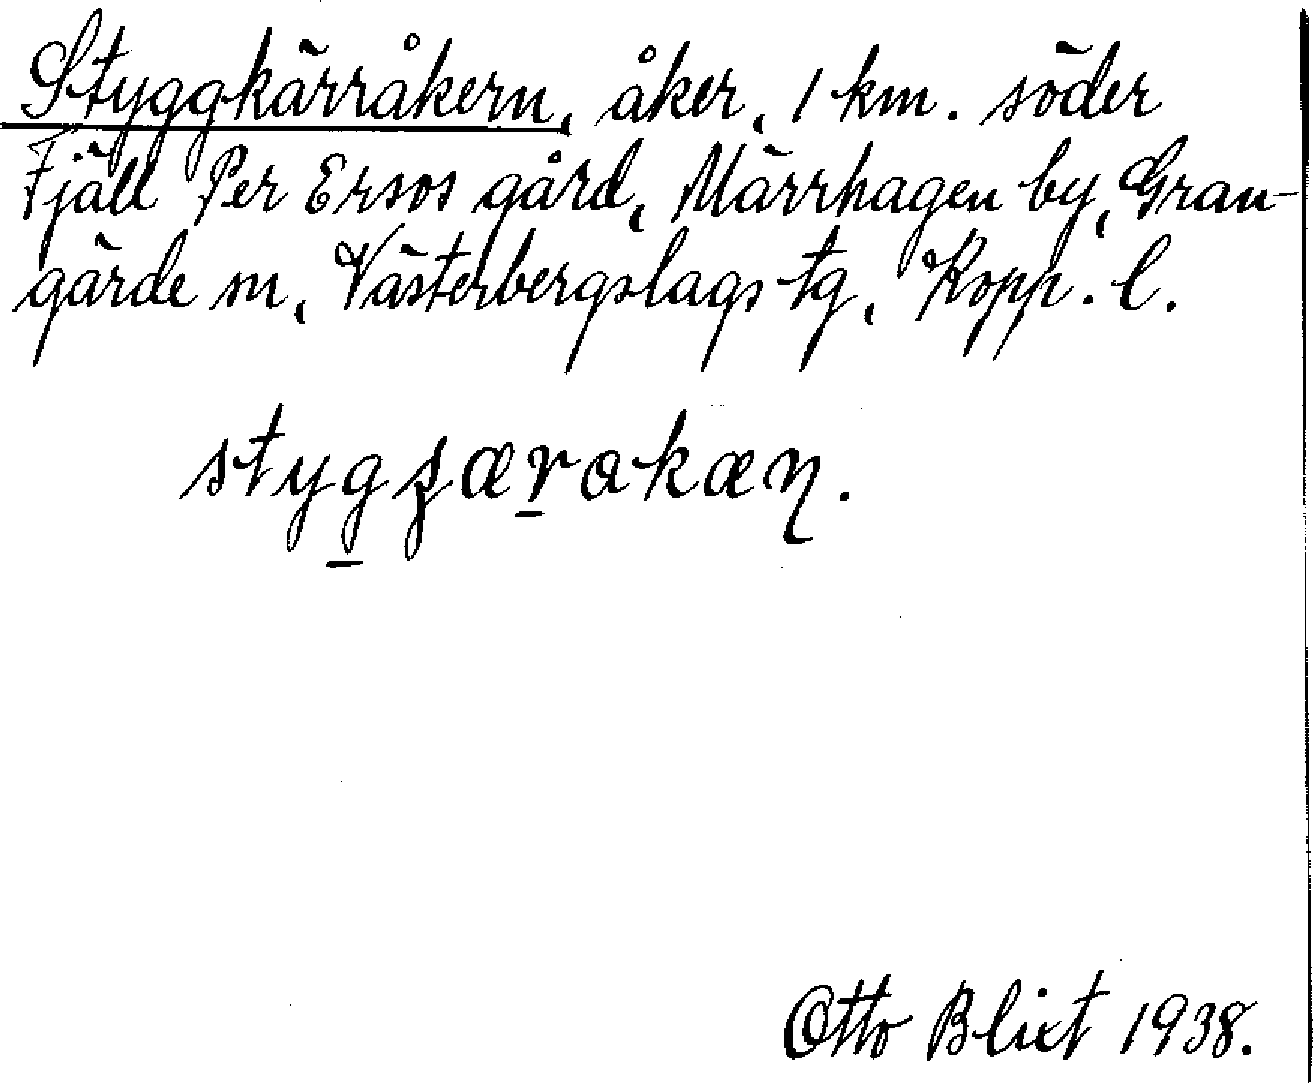 Styggkärråkern, åker, 1 km. söder
Fjäll Per Ersos gård, Märrhagen by, Gran-
gärde sn, Västerbergslags tg, Kopp. l.
Otto Blixt 1938.